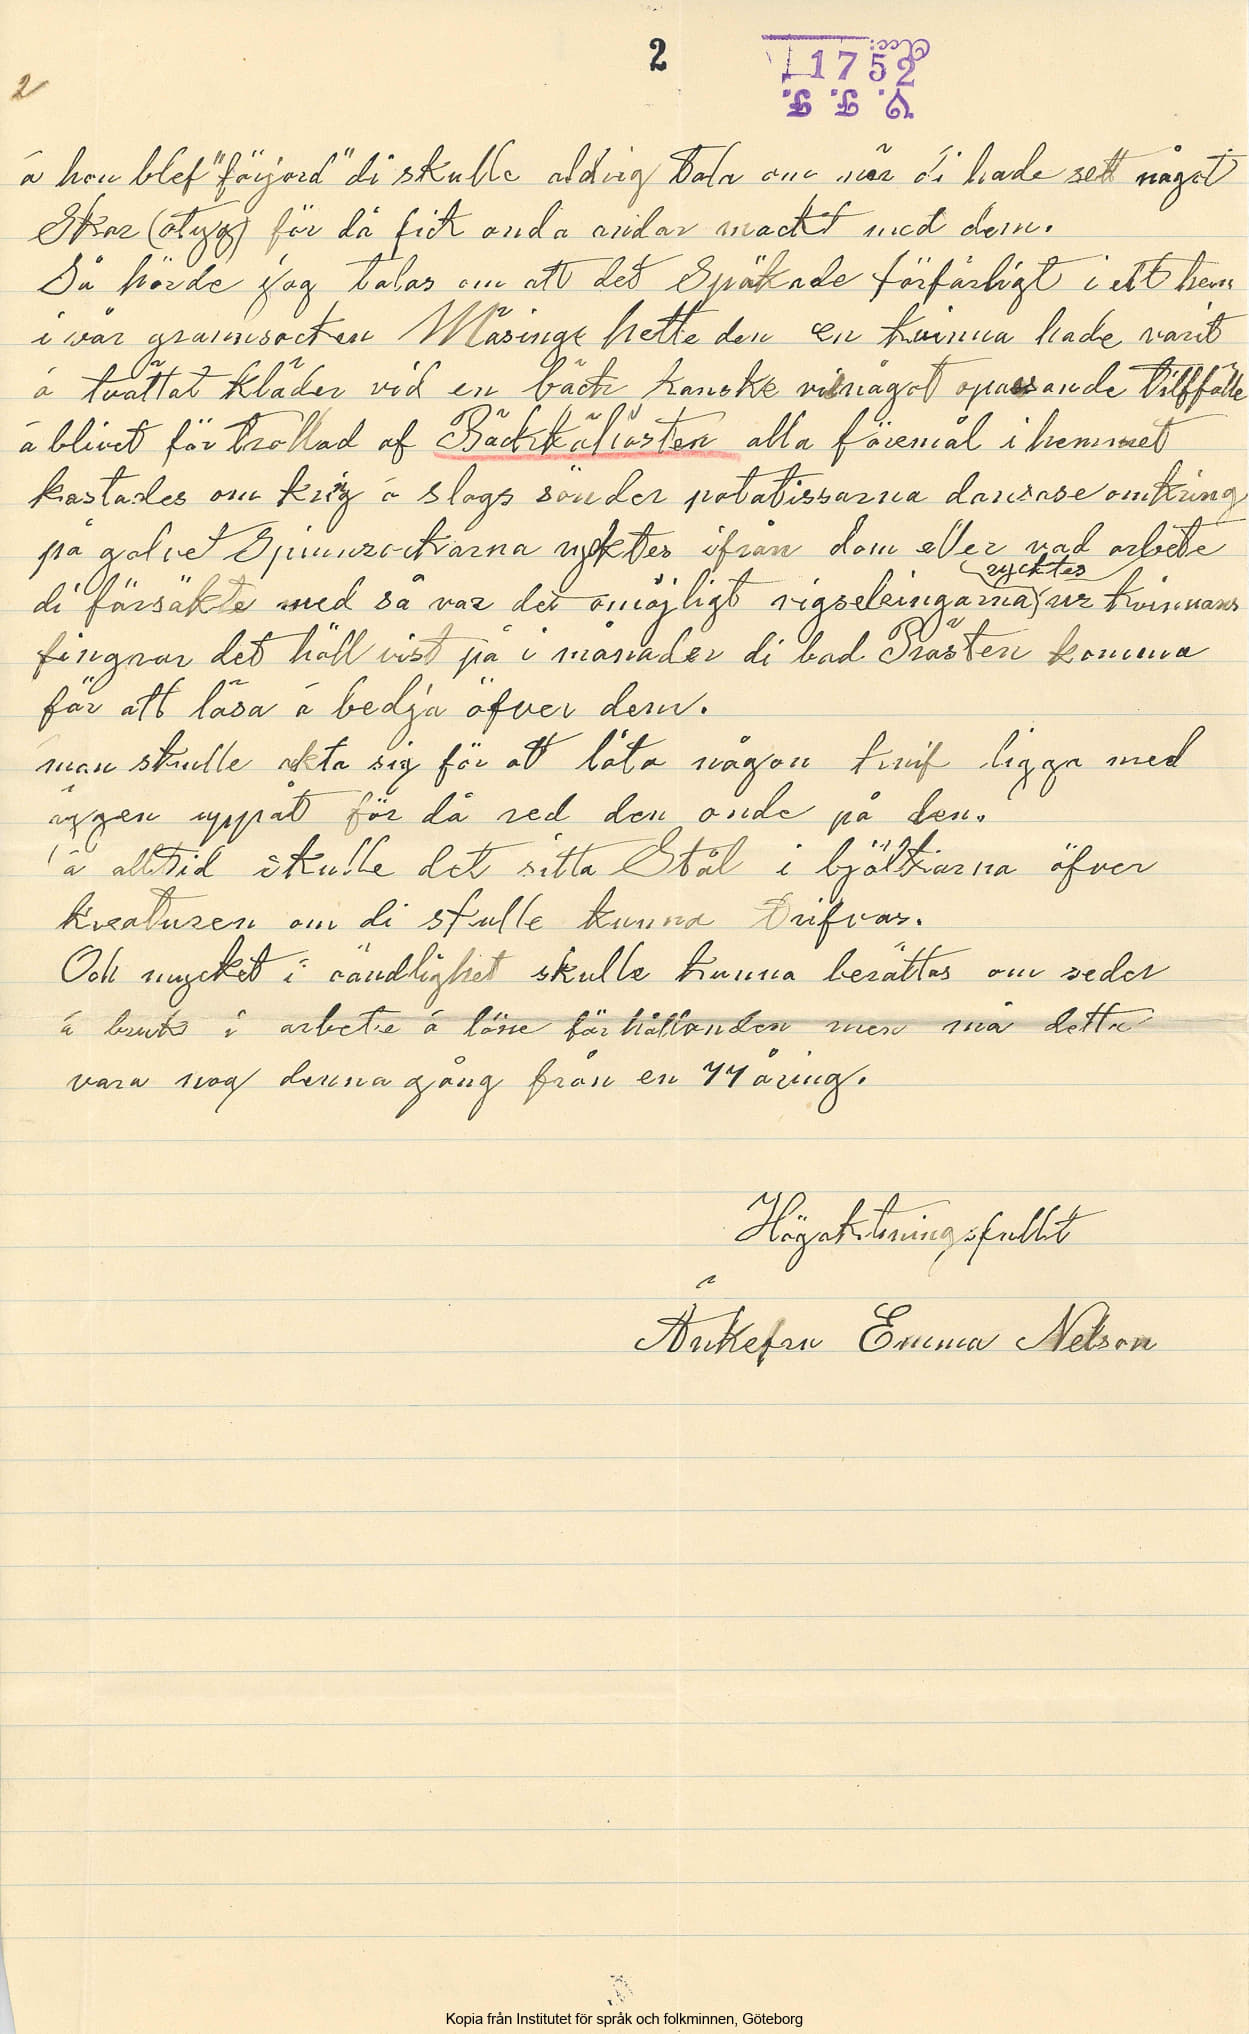 2
2
Acc: 1752
V. F. F.
å hon blef "förjord" di skulle aldrig tala om när di hade sett något
Skar (otyg) för då fick onda andar mackt med dem.
Så hörde jag talas om att det Spökade förfärligt i ett hem
i vår grannsocken Mäsinge hette den en kvinna hade varit
å tvättat kläder vid en bäck kanske vid något opassande tillfälle
å blivet för trollad af Bäckkälhästen alla föremål i hemmet
kastades om krig å slogs sönder potatissarna dansase omkring
på golvet Spinnrockarna ryktes ifrån dom eller vad arbete
di försökte med så var det omöjligt vigselringarna rycktes ur kvinnans
fingrar det höll vist på i månader di bad Prästen komma
för att läsa å bedja öfver dem.
man skulle akta sig för att låta någon knif ligga med
äggen uppåt för då red den onde på den.
å alltid skulle det sitta Stål i bjälkarna öfver
kreaturen om di skulle kunna trifvas.
Och mycket i oändlighet skulle kunna berättas om seder
å bruk i arbete å löne förhållanden men må detta
vara nog denna gång från en 77 åring.
Högaktningsfullt
Änkefru Emma Nelson
Kopia från Institutet för språk och folkminnen, Göteborg